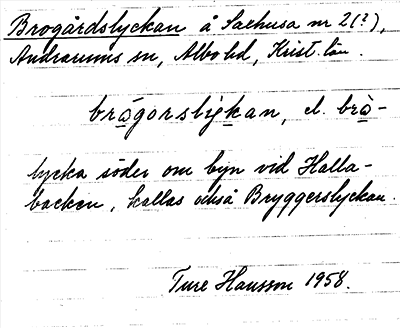 Brogårdslyckan å Saxhusa nr 2(?),
Andrarums sn, Albo hd, Krist. län.
brågorslykan, el. brò-
lycka söder om byn vid Halla-
backen, kallas också Bryggerslyckan.
Ture Hansson 1958.